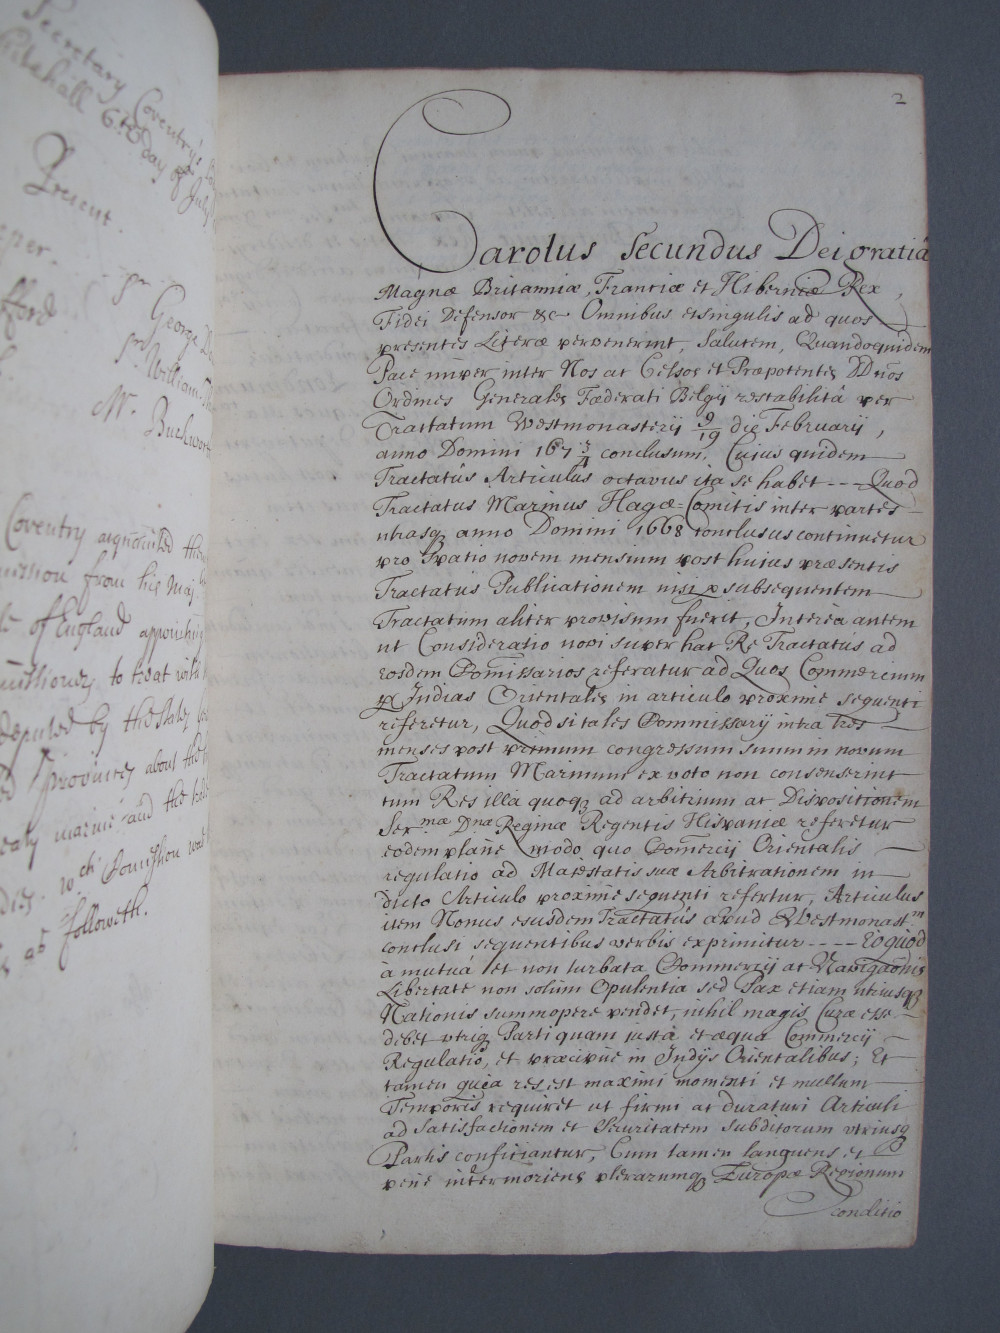 Secretary Coventry's
Whitehall 6th day of July
Present
fford
Sr George
Sr William
Mr. Buckwor
Coventry acquainted them
mission from his Maj.
of England appointing
missioners to treat with
deputed by the States
provinces about the
eaty marine and the
dies. wch Comission was
as followeth.
2
Carolus Secundus Dei gratiâ
Magnæ Britanniæ, Franciæ et Hiberniæ Rex,
Fidei Defensor &c Omnibus et singulis ad quos
presentes Literæ pervenerint, Salutem, Quandoquidem
Pace nuper inter Nos ac Celsos et Præpotentes DDnos
Ordines Generales Fæderati Belgij restabilitâ per
Tractatum Westmonasterij 9/19 die Februarij,
anno Domini 167 3/4 conclusum. Cuius quidem
Tractatûs Articulus octavus ita se habet --- Quod
Tractatus Marinus Hagæ=Comitis inter partes
utrasq anno Domini 1668 conclusus continuetur
pro spatio novem mensium post huius præsentis
Tractatus Publicationem nisi p subsequentem
Tractatum aliter provisum fuerit, Interea autem
ut Consideratio novi super hac Re Tractatûs ad
eosdem Comissarios referatur ad Quos Commercium
p Indias Orientales in articulo proxime sequenti
referetur, Quod si tales Commissarij intra Tres
menses post primum congressum suum in novum
Tractatum Marinum ex voto non consenserint
tum Res illa quoq ad arbitrium ac Dispositionem
Ser.mæ Dnæ Reginæ Regentis Hispaniæ referetur
eodem plane modo quo Comercij Orientalis
regulatio ad Majestatis suæ Arbitrationem in
dicto Articulo proxime sequenti refertur, Articulus
item Nonus eiusdem Tractatûs apud Westmonastm
conclusi sequentibus verbis exprimitur ---- Eo quod
à mutuâ et non turbata Commercij ac Navigaonis
Libertate non solùm Opulentia sed Pax etiam utriusq
Nationis summopere pendet, nihil magis Curæ esse
debet utriq Parti quam justa et æqua Commercij
Regulatio, et præcipue in Indijs Orientalibus; Et
tamen quia res est maximi momenti et multum
Temporis requiret ut firmi ac duraturi Articuli
ad satisfactionem et Securitatem subditorum utriusq
Partis conficiantur, Cum tamen languens et
pene intermoriens plerarumq Europæ Regionum
conditio